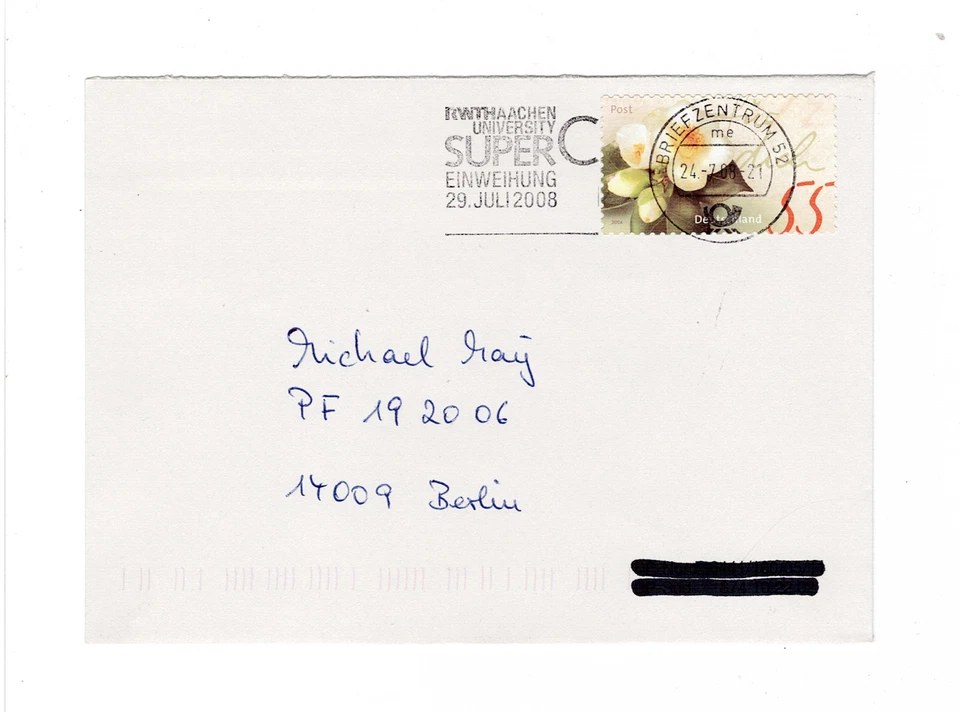 RWTHAACHEN
UNIVERSITY
SUPER C
EINWEIHUNG
29. JULI 2008
Post
BRIEFZENTRUM 52
me
24.-7.08-21
Deutschland
55
Michael May
PF 19 20 06
14009 Berlin